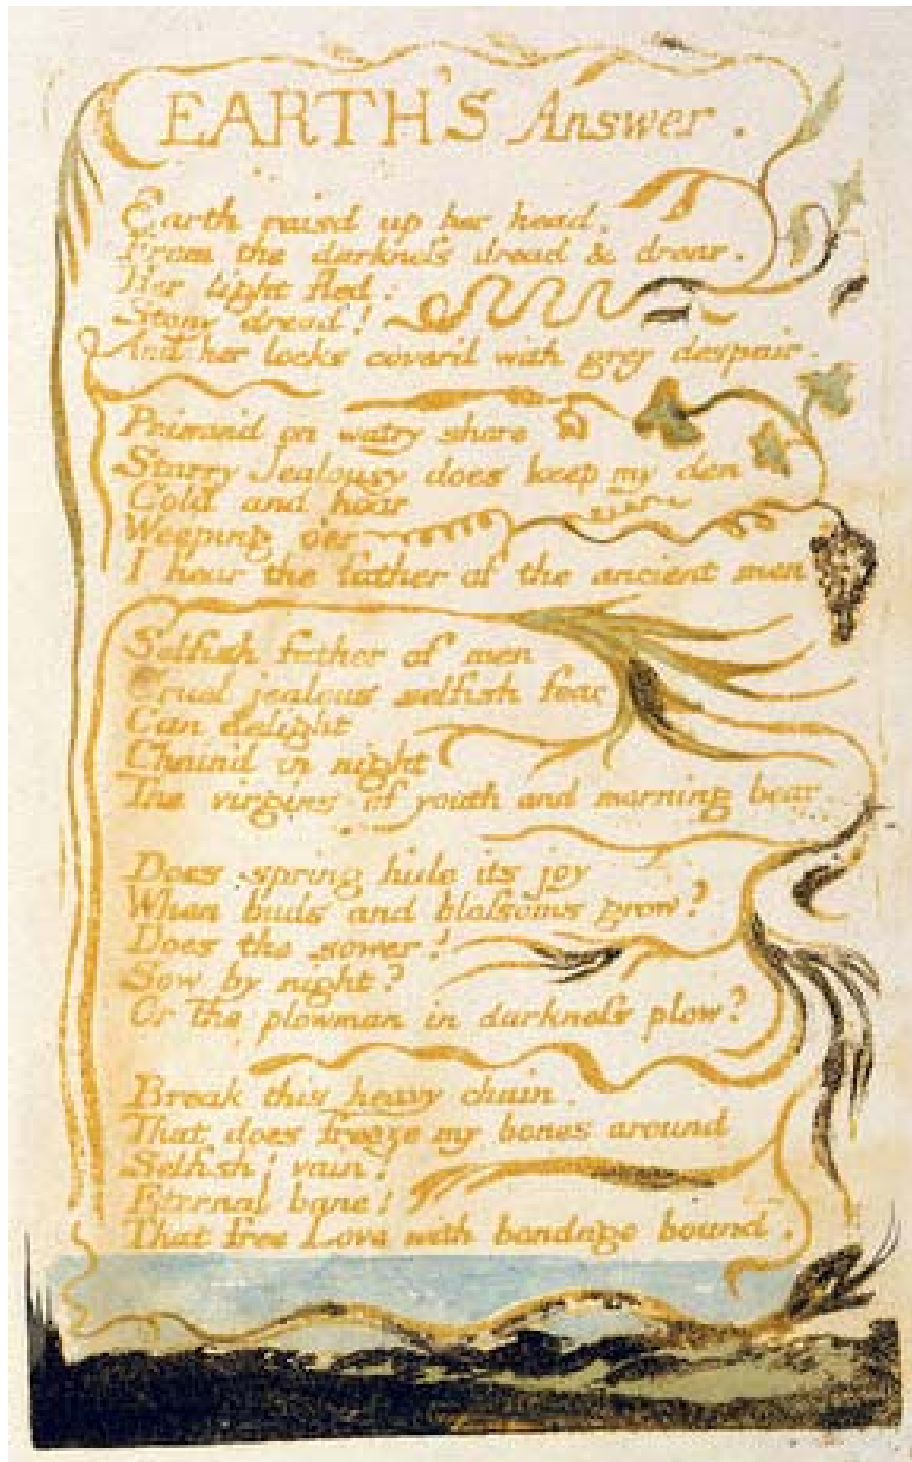 EARTH'S Answer.
Earth raised up her head,
From the darkness dread & drear.
Her light fled:
Stony dread!
And her locks cover'd with grey despair.
Prison'd on watry shore
Starry Jealousy does keep my den
Cold and hoar
Weeping o'er
I hear the father of the ancient men
Selfish father of men
Cruel jealous selfish fear
Can delight
Chain'd in night
The virgins of youth and morning bear.
Does spring hide its joy
When buds and blossoms grow?
Does the sower!
Sow by night?
Or the plowman in darkness plow?
Break this heavy chain.
That does freeze my bones around
Selfish! vain!
Eternal bane!
That free Love with bondage bound.